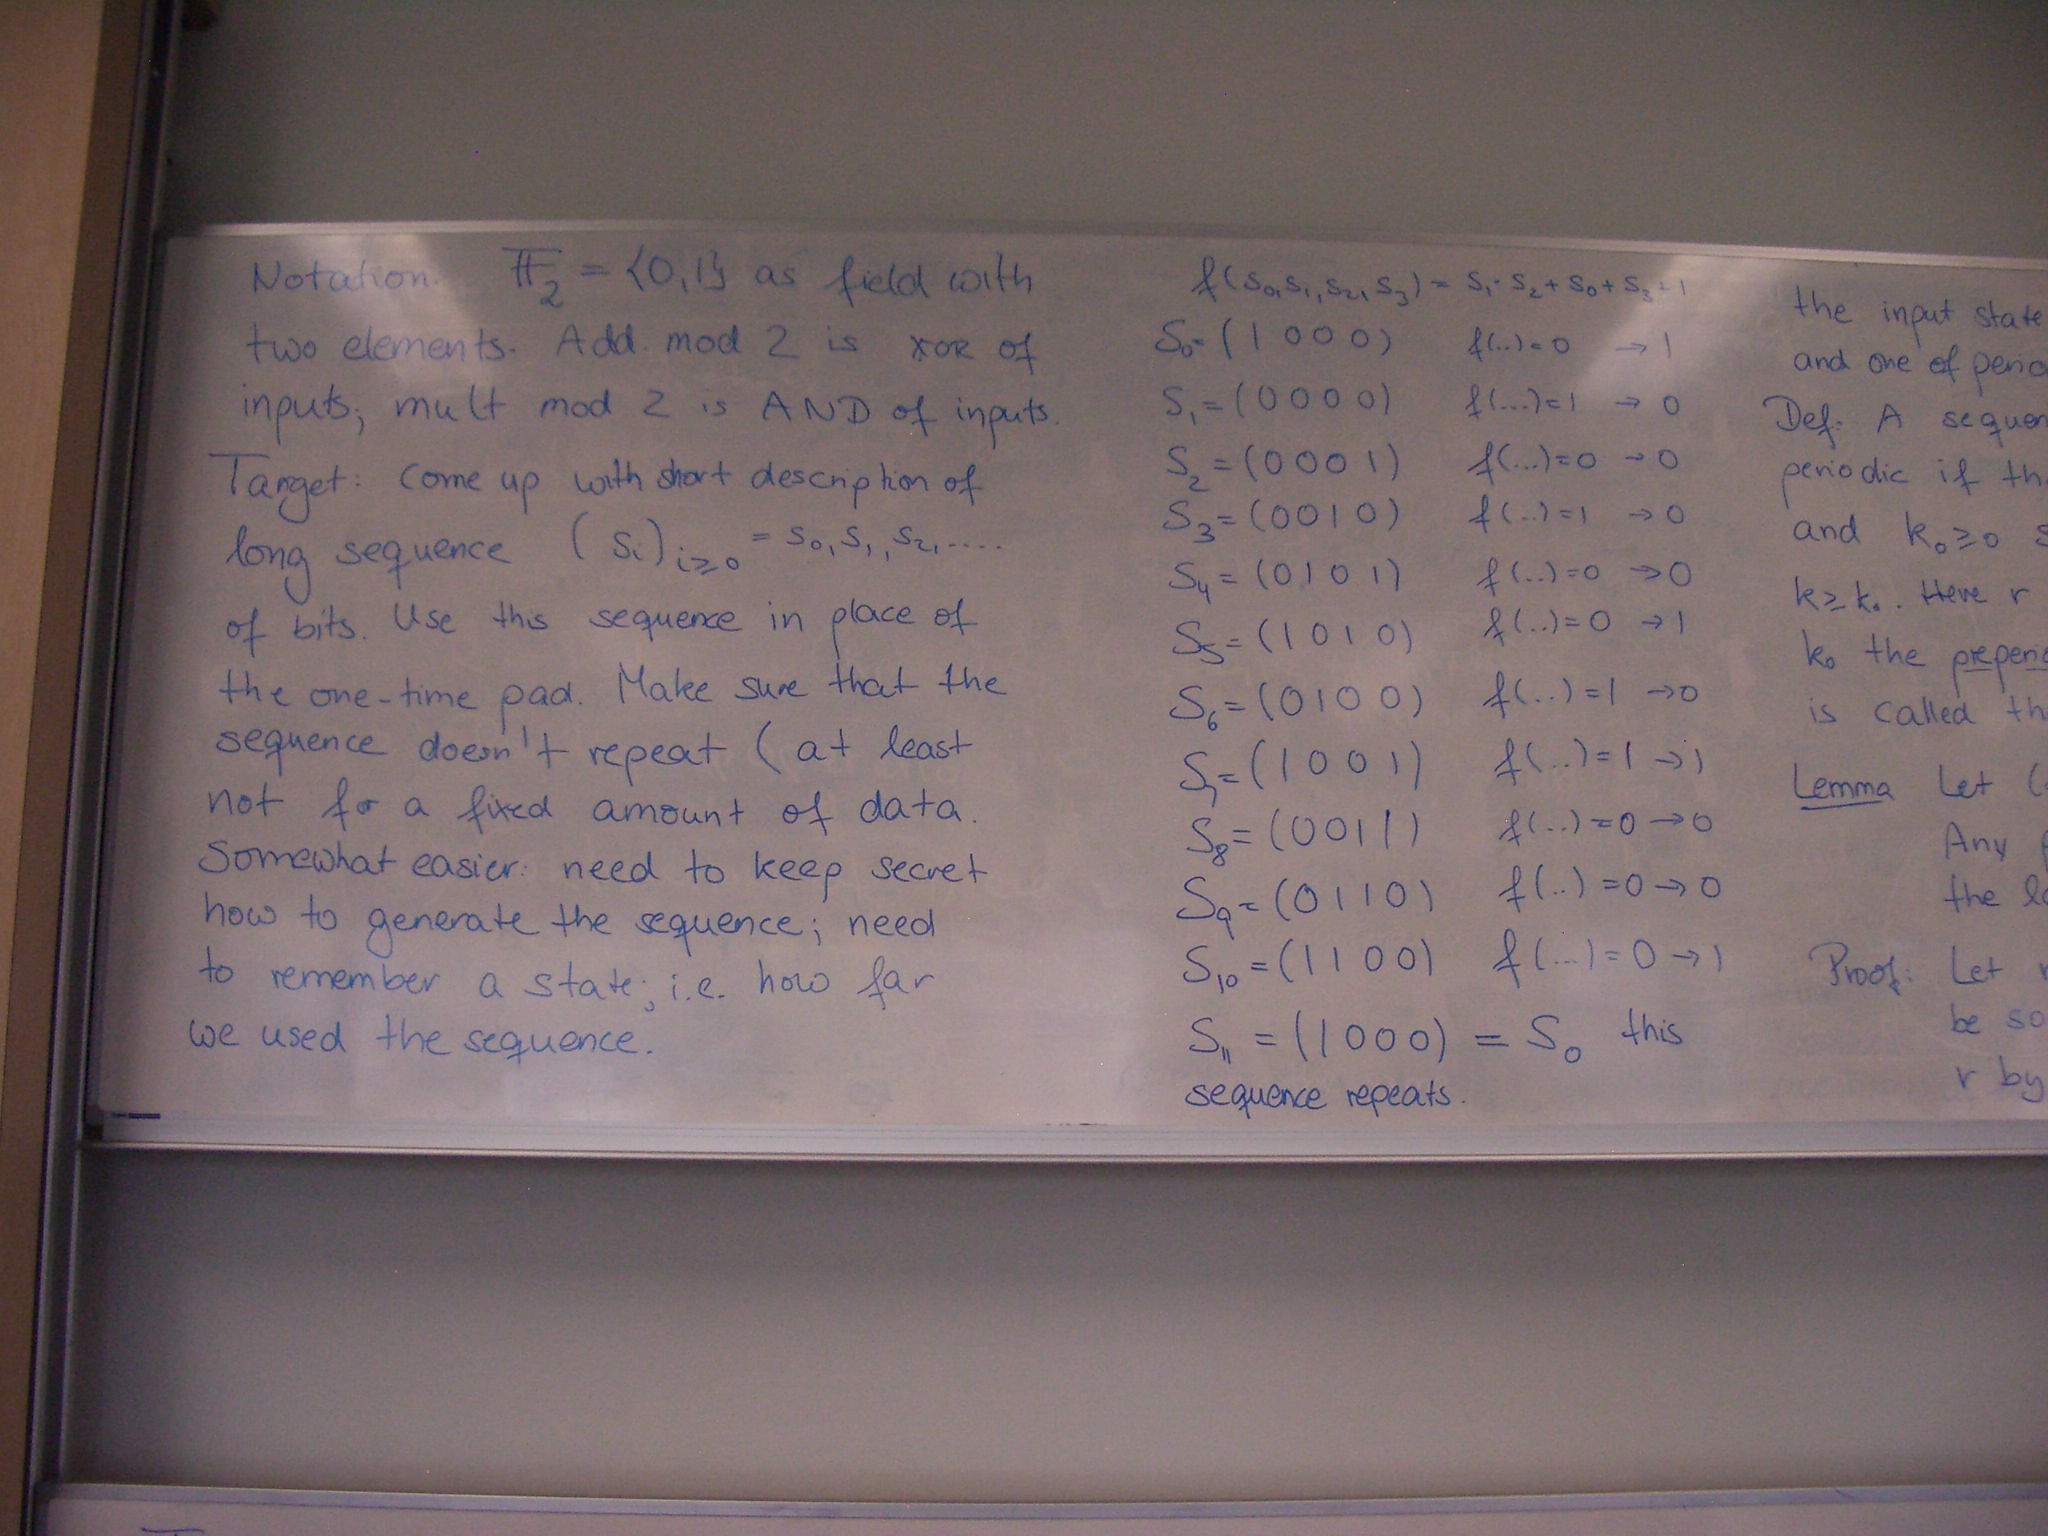 Notation: 𝔽₂ = {0,1} as field with
two elements. Add. mod 2 is XOR of
inputs; mult mod 2 is AND of inputs.
Target: Come up with short description of
long sequence (sᵢ)ᵢ≥₀ = s₀, s₁, s₂, ....
of bits. Use this sequence in place of
the one-time pad. Make sure that the
sequence doesn't repeat (at least
not for a fixed amount of data.
Somewhat easier: need to keep secret
how to generate the sequence; need
to remember a state; i.e. how far
we used the sequence.
f(s₀,s₁,s₂,s₃) = s₁·s₂+s₀+s₃+1
S₀=(1 0 0 0) f(..)=0 → 1
S₁=(0 0 0 0) f(...)=1 → 0
S₂=(0 0 0 1) f(...)=0 → 0
S₃=(0 0 1 0) f(..)=1 → 0
S₄=(0 1 0 1) f(..)=0 → 0
S₅=(1 0 1 0) f(..)=0 → 1
S₆=(0 1 0 0) f(..)=1 → 0
S₇=(1 0 0 1) f(..)=1 → 1
S₈=(0 0 1 1) f(..)=0 → 0
S₉=(0 1 1 0) f(..)=0 → 0
S₁₀=(1 1 0 0) f(...)=0 → 1
S₁₁=(1 0 0 0) = S₀ this
sequence repeats.
the input state
and one of perio
Def: A sequen
periodic if th
and k₀≥0 s
k≥k₀. Here r
k₀ the preperio
is called th
Lemma Let (
Any
the l
Proof: Let r
be so
r by